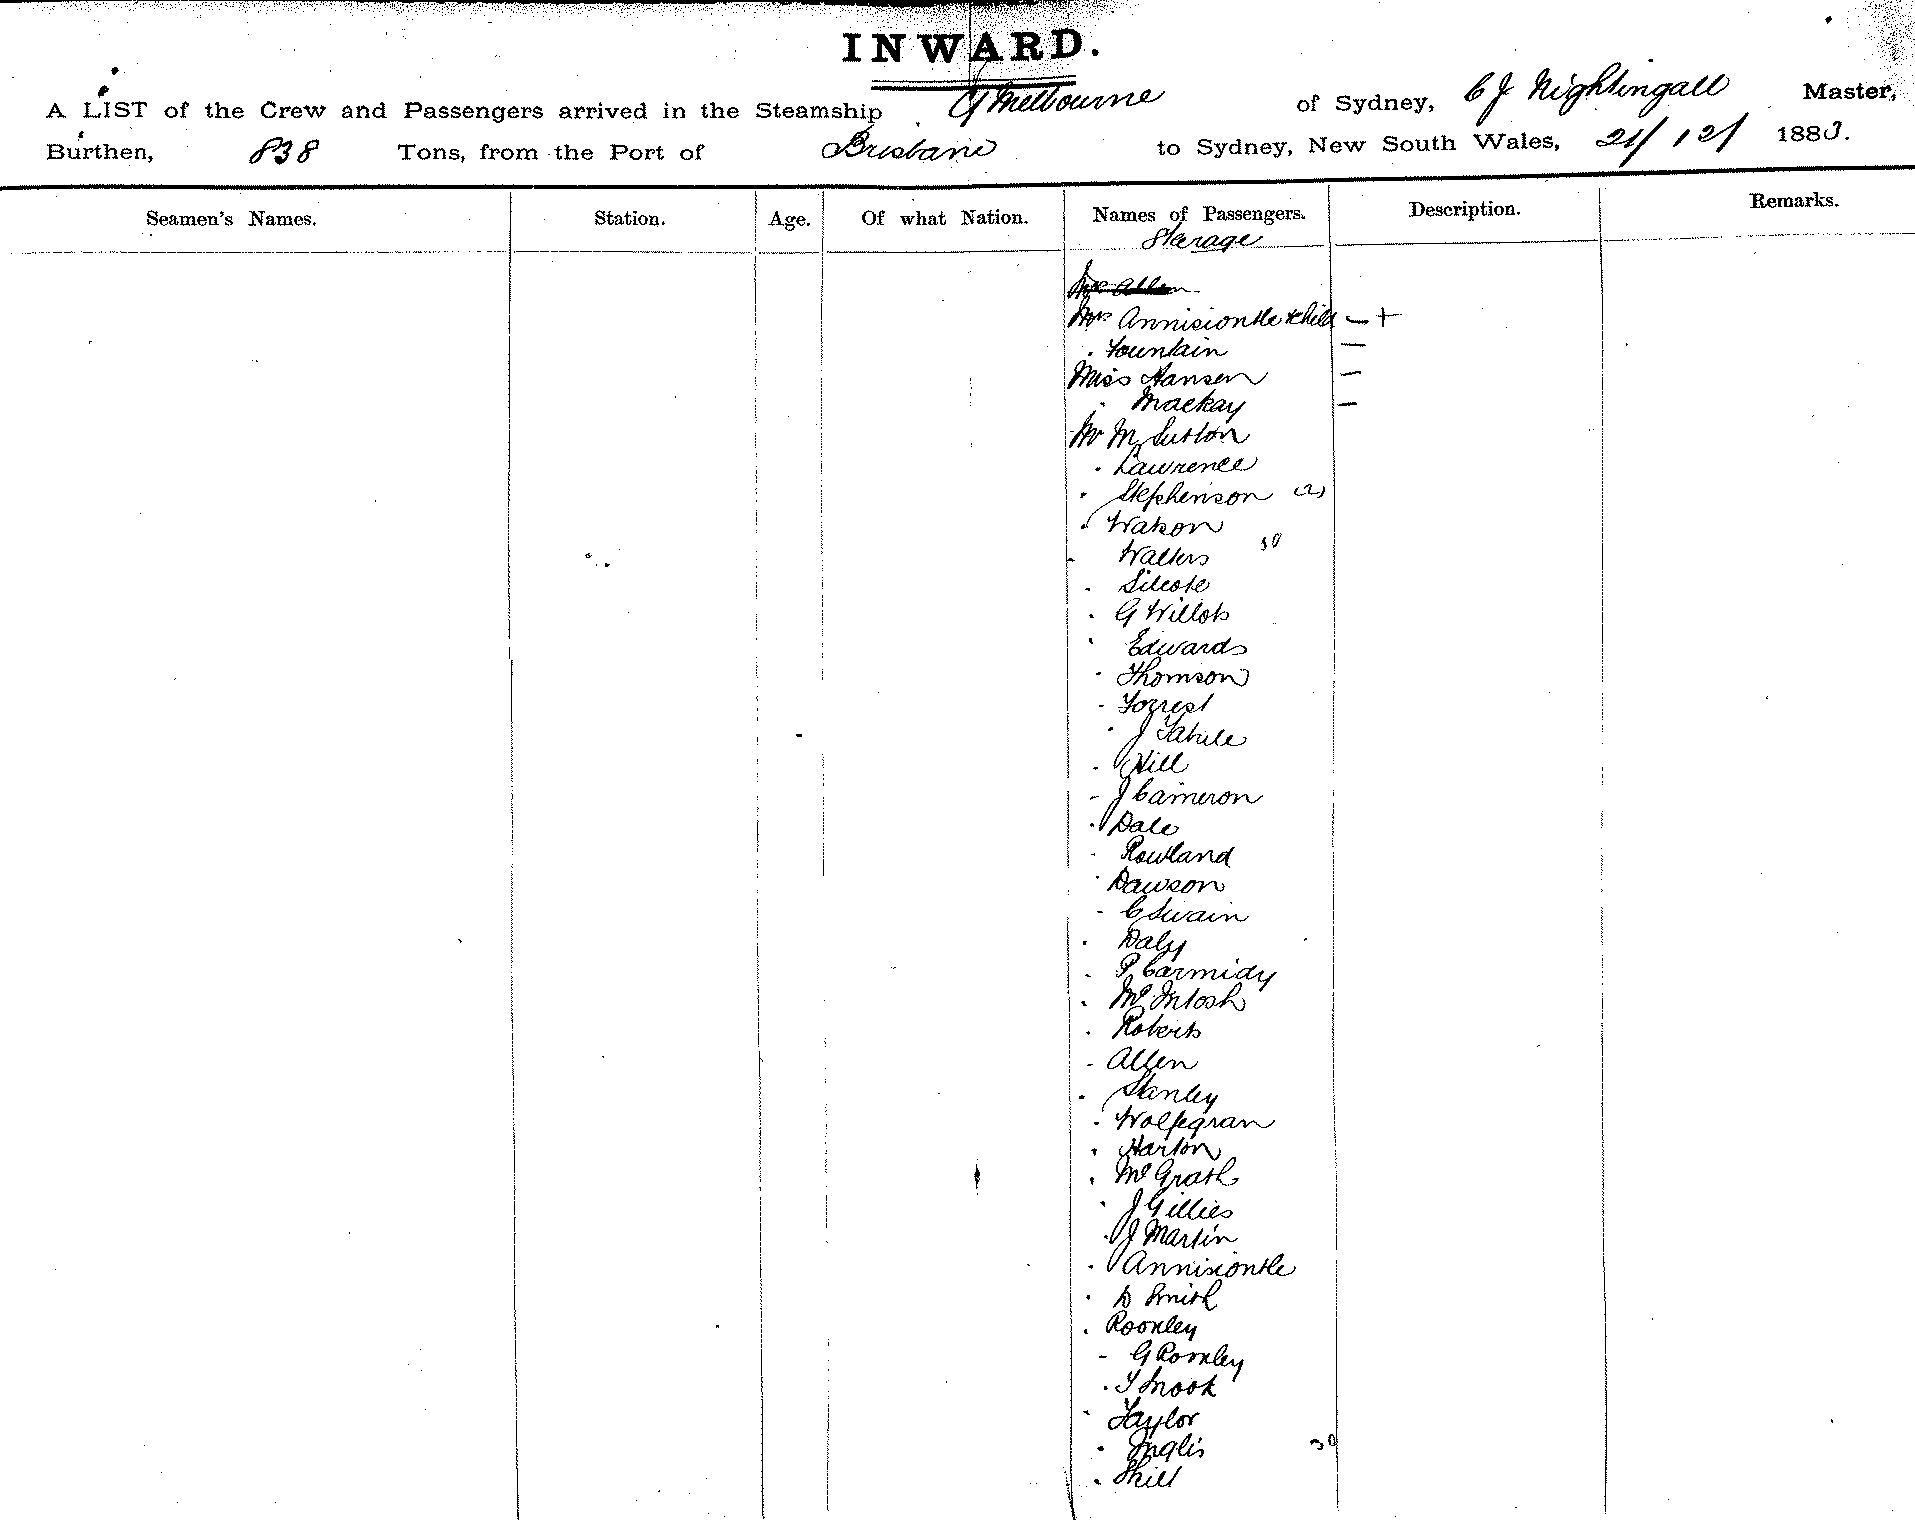 INWARD.
A LIST of the Crew and Passengers arrived in the Steamship Melbourne of Sydney, C J Nightingall Master,
Burthen, 838 Tons, from the Port of Brisbane to Sydney, New South Wales, 21/12/ 1883.
Seamen's Names. Station. Age. Of what Nation. Names of Passengers. Description. Remarks.
Starage
Allen
Mrs Annisiontle & child - +
. Fountain -
Miss Hansen -
. Mackay -
Mr M Sutton
. Lawrence
. Stephenson (2)
. Watson
- Walters 10
. Silcote
. G Willots
. Edwards
- Thomson
- Forrest
. J
. Hill
- J Cameron
. Dale
- Rowland
. Dawson
- C Swain
. Daly
. P Carmidy
. McIntosh
. Roberts
- Allen
. Stanley
. Wolfegran
. Harton
. McGrath
. J Gillies
. J Martin
. Annisiontle
. D Smith
. Roomley
- G Romley
. T Snook
. Taylor
. Inglis 30
. Shill